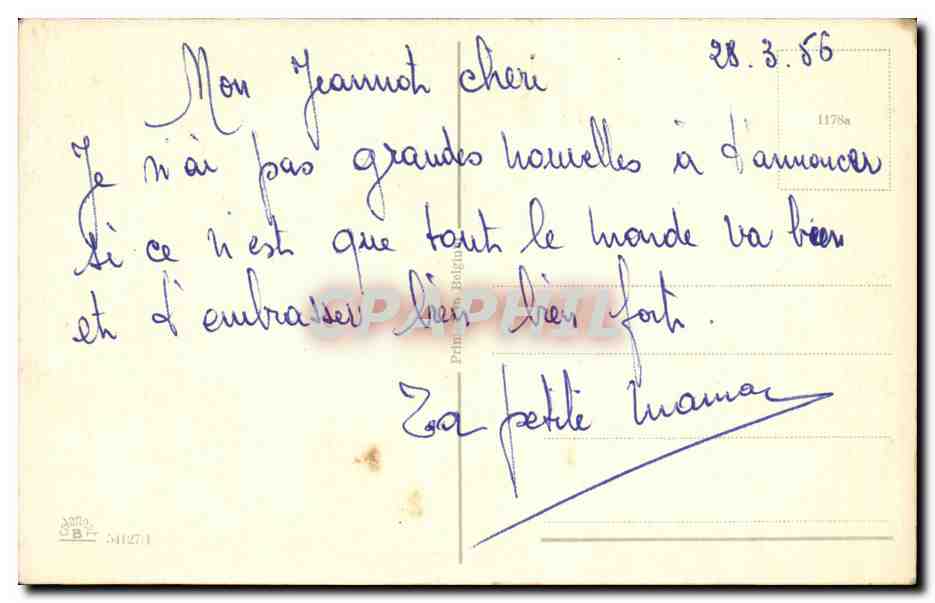 28.3.56
Mon Jeannot cheri
1178a
Je n'ai pas grandes nouvelles à t'annoncer
si ce n'est que tout le monde va bien
et t'embrasser bien bien fort.
Ta petite maman
CPAPHIL
Printed in Belgium
54127/1